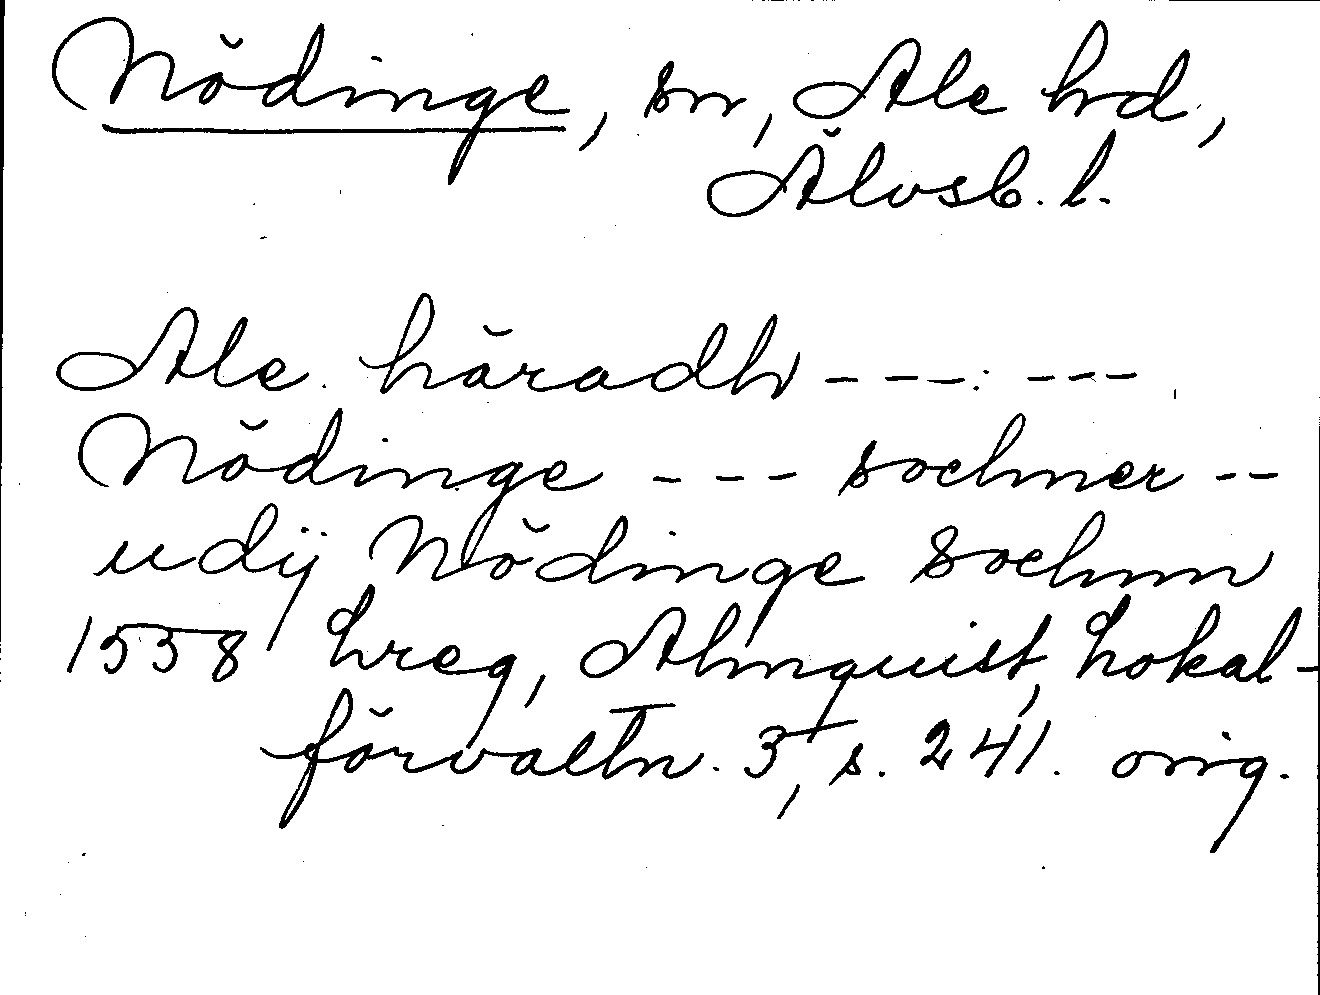 Nödinge, sn, Ale hd,
Älvsb. l.
Ale häradh - - - - - -
Nödinge - - - sochner - -
udij Nödinge sochnn
1558 hreg, Almquist, Lokal-
förvaltn. 3, s. 241. orig.